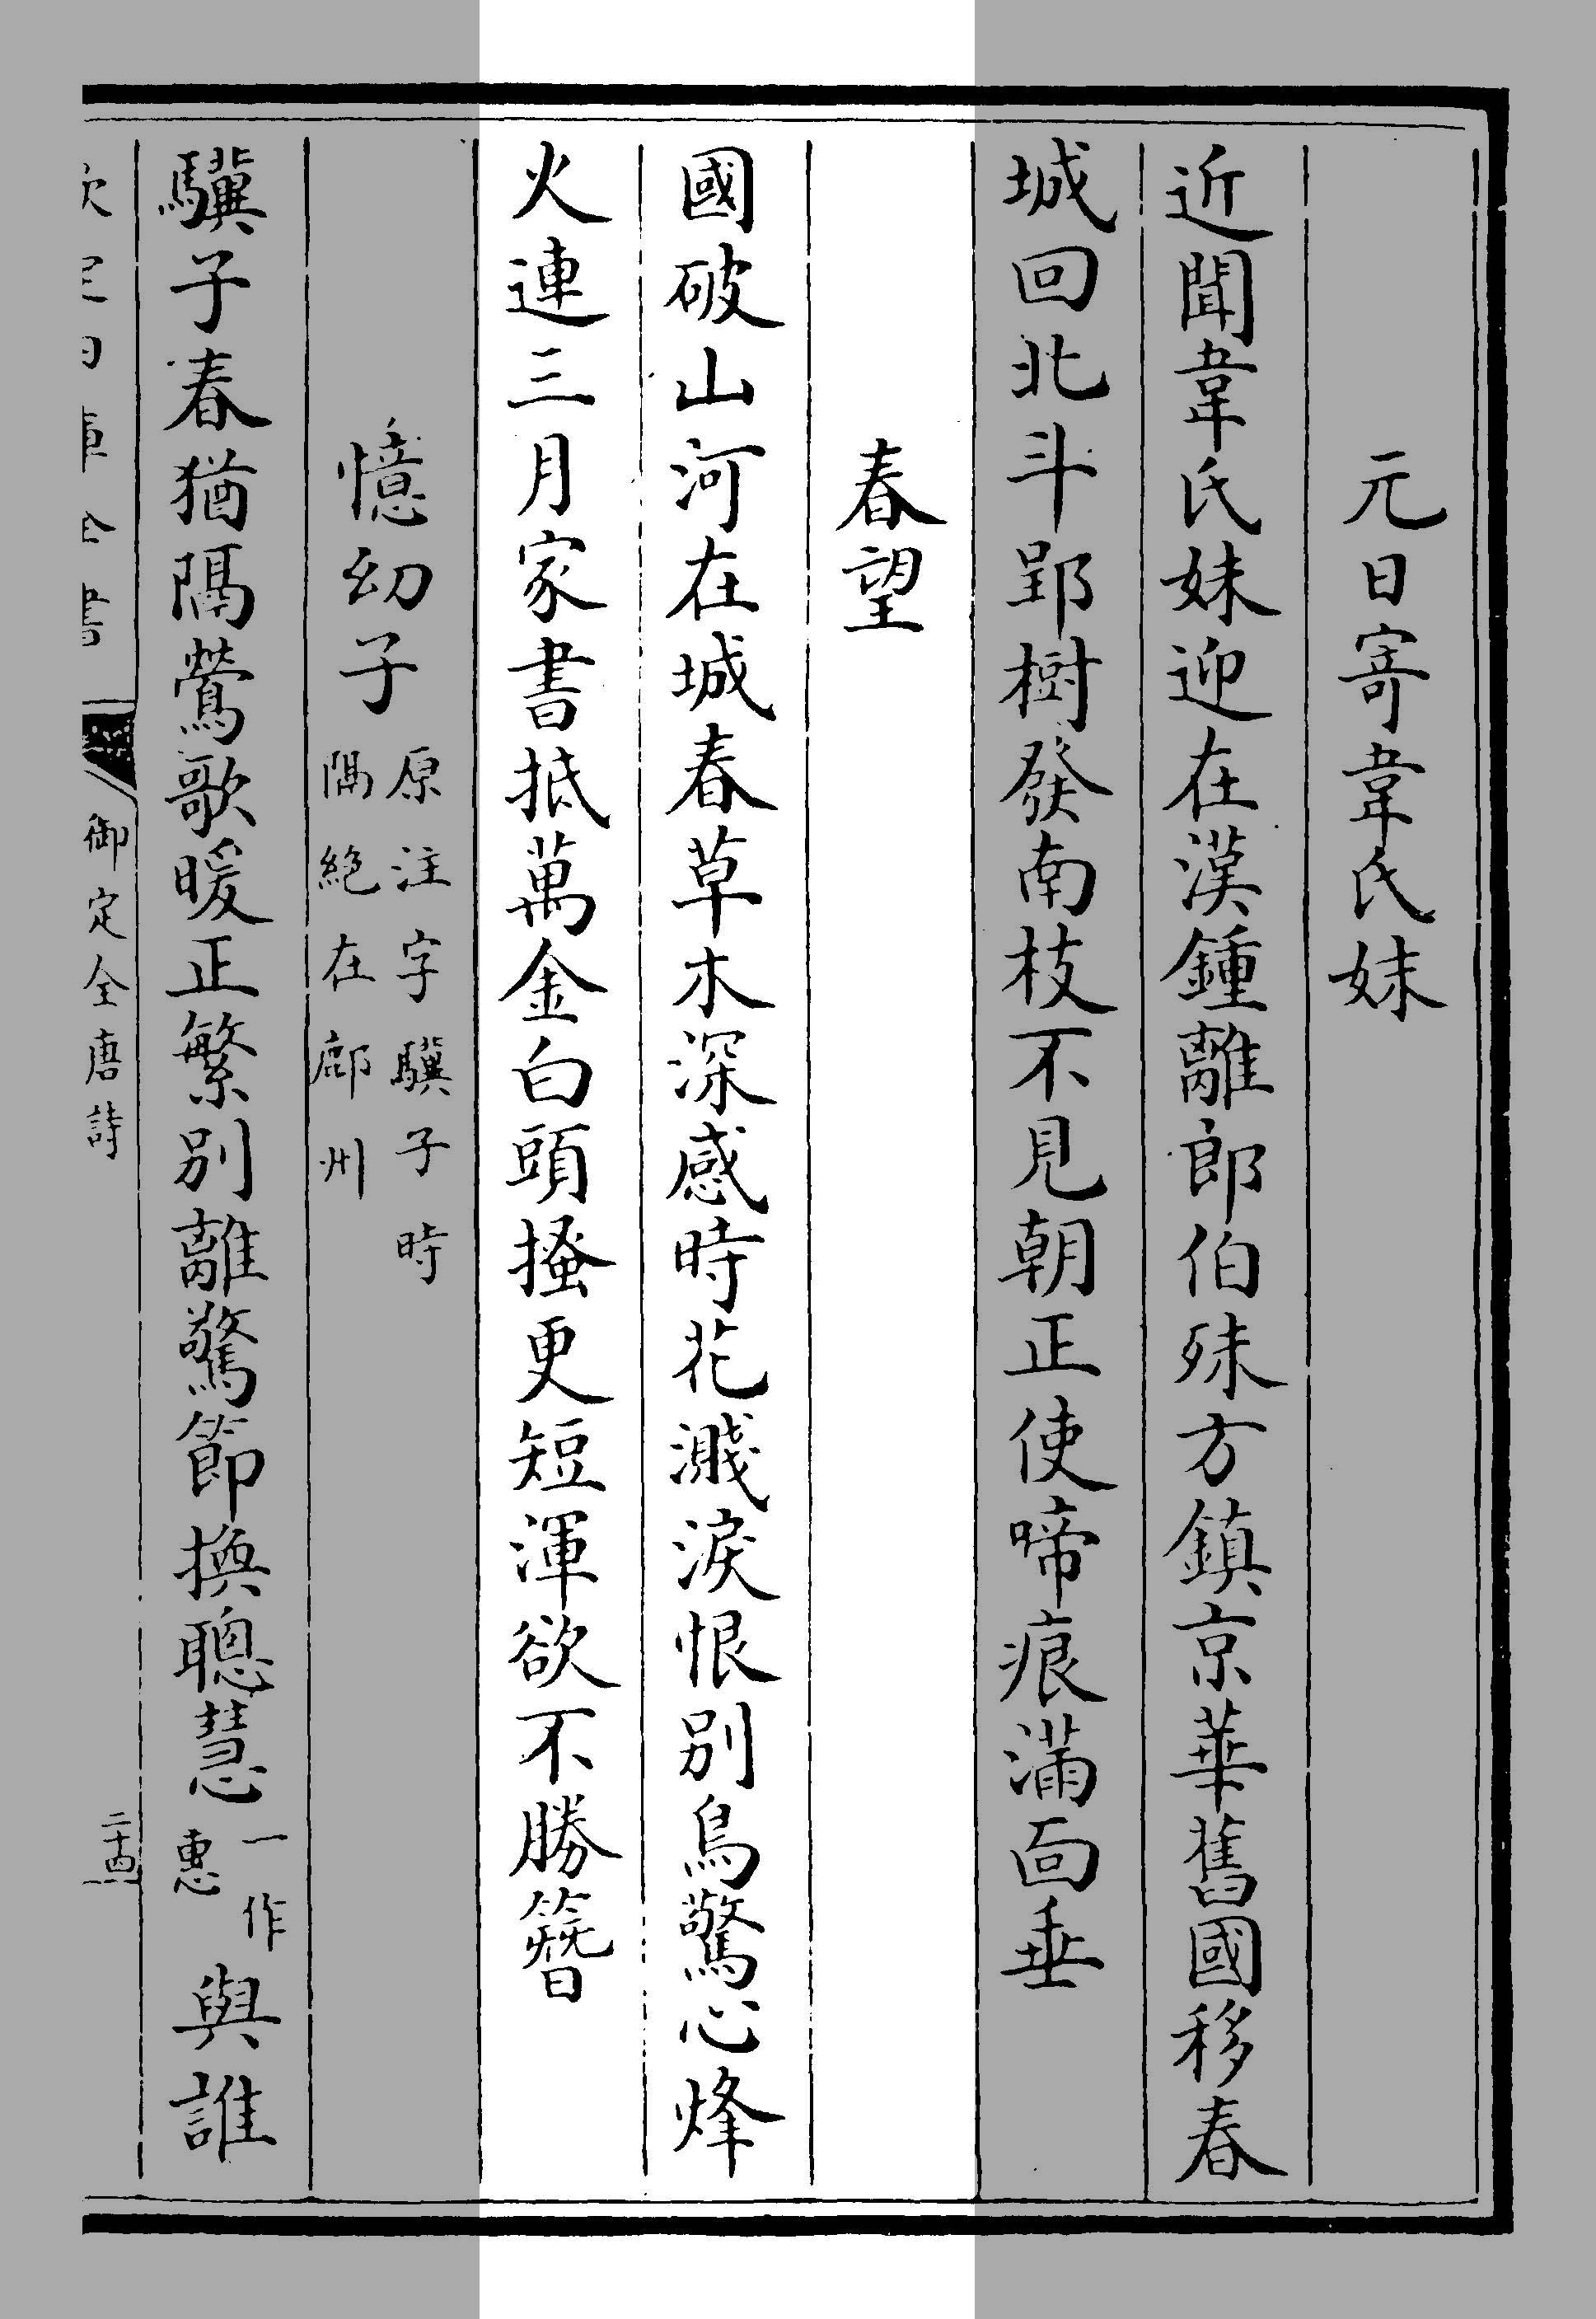 元日寄韋氏妹
近聞韋氏妹迎在漢鍾離郎伯殊方鎮京華舊國移春
城回北斗郢樹發南枝不見朝正使啼痕滿面垂
春望
國破山河在城春草木深感時花濺淚恨別鳥驚心烽
火連三月家書抵萬金白頭搔更短渾欲不勝簪
憶幼子原注字驥子時隔絶在鄜州
驥子春猶隔鶯歌暖正繁別離驚節換聰慧一作惠與誰
欽定四庫全書 御定全唐詩 二十四